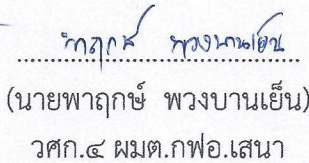 พาฤกษ์ พวงบานเย็น
(นายพาฤกษ์ พวงบานเย็น)
วศก.๔ ผมต.กฟอ.เสนา